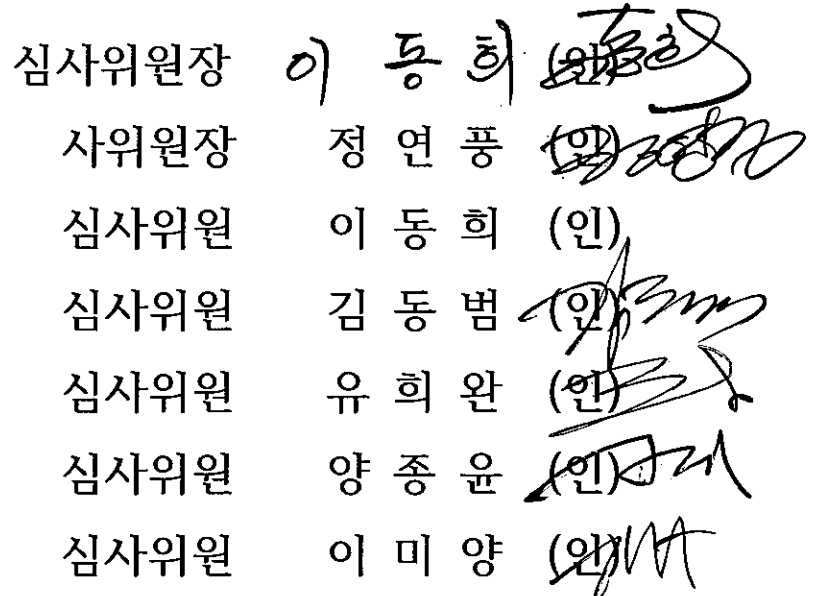 심사위원장 이 동 희 (인)
사위원장 정 연 풍 (인)
심사위원 이 동 희 (인)
심사위원 김 동 범 (인)
심사위원 유 희 완 (인)
심사위원 양 종 윤 (인)
심사위원 이 미 양 (인)